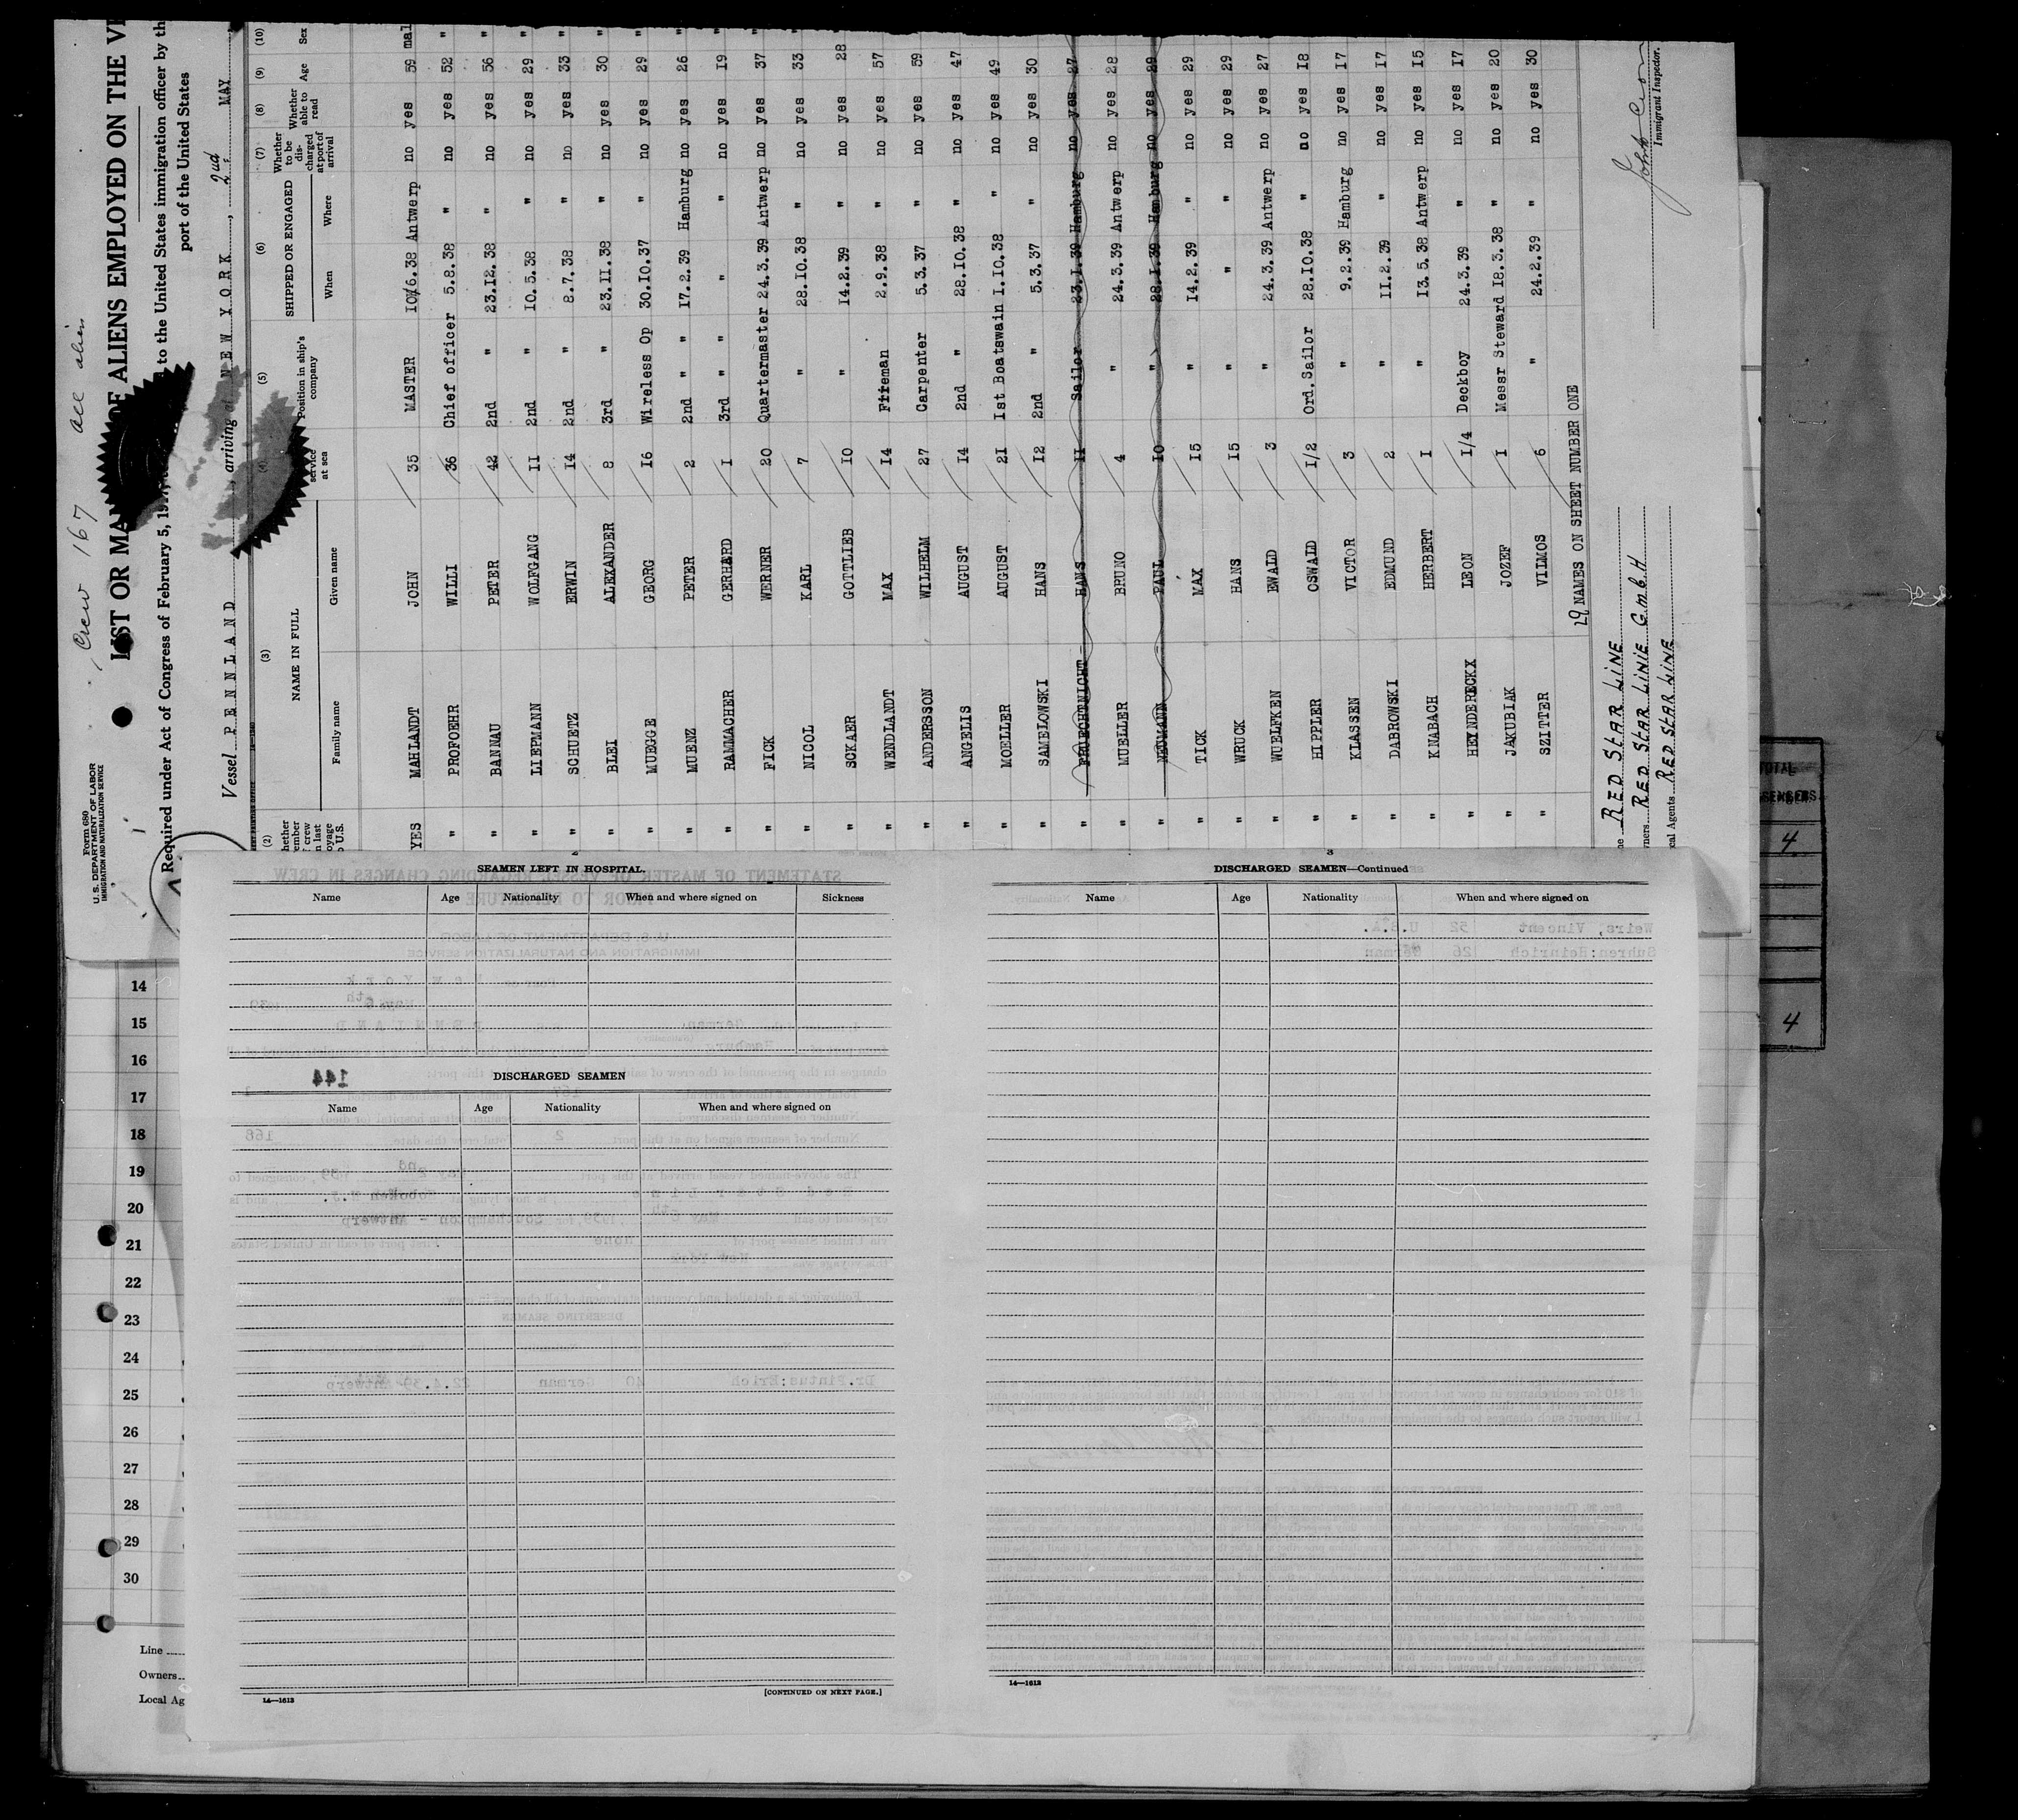 Crew 167 all alien
Form 680
U. S. DEPARTMENT OF LABOR
IMMIGRATION AND NATURALIZATION SERVICE
LIST OR MA OF ALIENS EMPLOYED ON THE V
Required under Act of Congress of February 5, 19 to the United States immigration officer by th
port of the United States
Vessel PENNLAND arriving at NEW YORK, 2nd MAY
(2) (3) (4) (5) (6) (7) (8) (9) (10)
NAME IN FULL
Family name Given name
service at sea
Position in ship's company
SHIPPED OR ENGAGED
When Where
Whether to be discharged at port of arrival
Whether able to read
Age Sex
YES MAHLANDT JOHN 35 MASTER 10/6.38 Antwerp no yes 59 mal
" PROFOEHR WILLI 36 Chief officer 5.8.38 " no yes 52 "
" BANNAU PETER 42 2nd " 23.12.38 " no yes 56 "
" LIEPMANN WOLFGANG 11 2nd " 10.5.38 " no yes 29 "
" SCHUETZ ERWIN 14 2nd " 8.7.38 " no yes 33 "
" BLEI ALEXANDER 8 3rd " 23.11.38 " no yes 30 "
" MUEGGE GEORG 16 Wireless Op 30.10.37 " no yes 29 "
" MUENZ PETER 2 2nd " " 17.2.39 Hamburg no yes 26 "
" RAMMACHER GERHARD 1 3rd " " " " no yes 19 "
" FICK WERNER 20 Quartermaster 24.3.39 Antwerp no yes 37 "
" NICOL KARL 7 " 28.10.38 " no yes 33
" SCKAER GOTTLIEB 10 " 14.2.39 no yes 28
" WENDLANDT MAX 14 Fireman 2.9.38 " no yes 57
" ANDERSSON WILHELM 27 Carpenter 5.3.37 " no yes 59
" ANGELIS AUGUST 14 2nd " 28.10.38 " no yes 47
" MOELLER AUGUST 21 1st Boatswain 1.10.38 " no yes 49
" SAMELOWSKI HANS 12 2nd " 5.3.37 " no yes 30
" FRUECHTNICHT HANS 11 Sailor 23.1.39 Hamburg no yes 27
" MUELLER BRUNO 4 " 24.3.39 Antwerp no yes 28
" NEUMANN PAUL 10 " 28.1.39 Hamburg no yes 29
" TICK MAX 15 " 14.2.39 " no yes 29
" WRUCK HANS 15 " " " no yes 29
" WUELFKEN EWALD 3 " 24.3.39 Antwerp no yes 27
" HIPPLER OSWALD 1/2 Ord.Sailor 28.10.38 " no yes 18
" KLASSEN VICTOR 3 " 9.2.39 Hamburg no yes 17
" DABROWSKI EDMUND 2 " 11.2.39 " no yes 17
" KNABACH HERBERT 1 " 13.5.38 Antwerp no yes 15
" HEYNDERECKX LEON 1/4 Deckboy 24.3.39 " no yes 17
" JAKUBIAK JOZEF 1 Messr Steward 18.3.38 " no yes 20
" SZITTER VILMOS 6 " 24.2.39 " no yes 30
29 NAMES ON SHEET NUMBER ONE
RED STAR LINE
RED STAR LINIE G.m.b.H
cal Agents RED STAR LINE
Immigrant Inspector.
TOTAL
4
4
SEAMEN LEFT IN HOSPITAL.
Name Age Nationality When and where signed on Sickness
DISCHARGED SEAMEN
Name Age Nationality When and where signed on
14—1613
[CONTINUED ON NEXT PAGE.]
3
DISCHARGED SEAMEN—Continued
Name Age Nationality When and where signed on
14—1613
14
15
16
17
18
19
20
21
22
23
24
25
26
27
28
29
30
Line
Owners
Local Ag